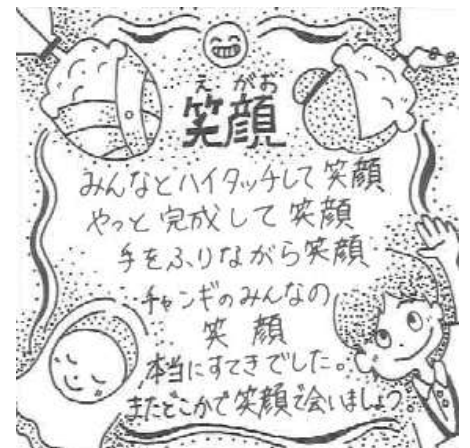 えがお
笑顔
みんなとハイタッチして笑顔
やっと完成して笑顔
手をふりながら笑顔
チャンギのみんなの
笑顔
本当にすてきでした。
またどこかで笑顔で会いましょう。